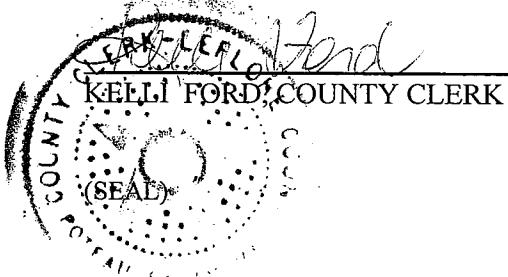 Kelli Ford
KELLI FORD, COUNTY CLERK
(SEAL)
COUNTY CLERK-LEFLO
POTEAU